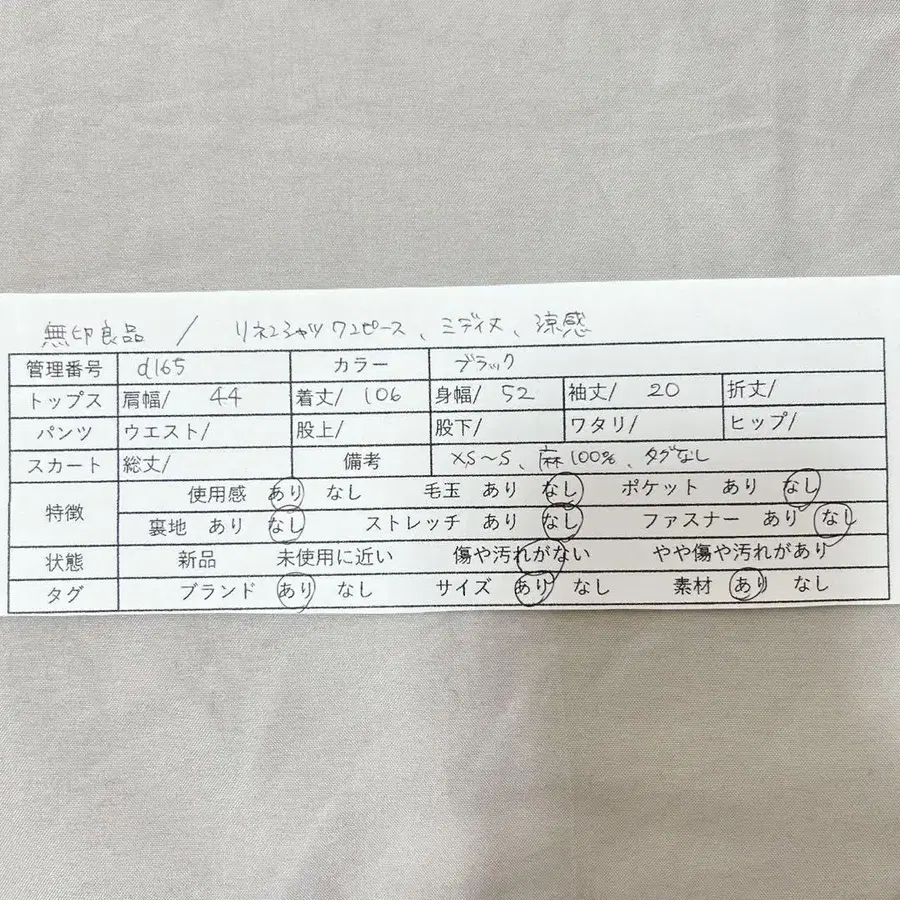 無印良品 / リネンシャツワンピース、ミディ丈、涼感
管理番号 d165 カラー ブラック
トップス 肩幅/ 44 着丈/ 106 身幅/ 52 袖丈/ 20 折丈/
パンツ ウエスト/ 股上/ 股下/ ワタリ/ ヒップ/
スカート 総丈/ 備考 XS〜S、麻100%、タグなし
特徴 使用感 あり なし 毛玉 あり なし ポケット あり なし
裏地 あり なし ストレッチ あり なし ファスナー あり なし
状態 新品 未使用に近い 傷や汚れがない やや傷や汚れがあり
タグ ブランド あり なし サイズ あり なし 素材 あり なし